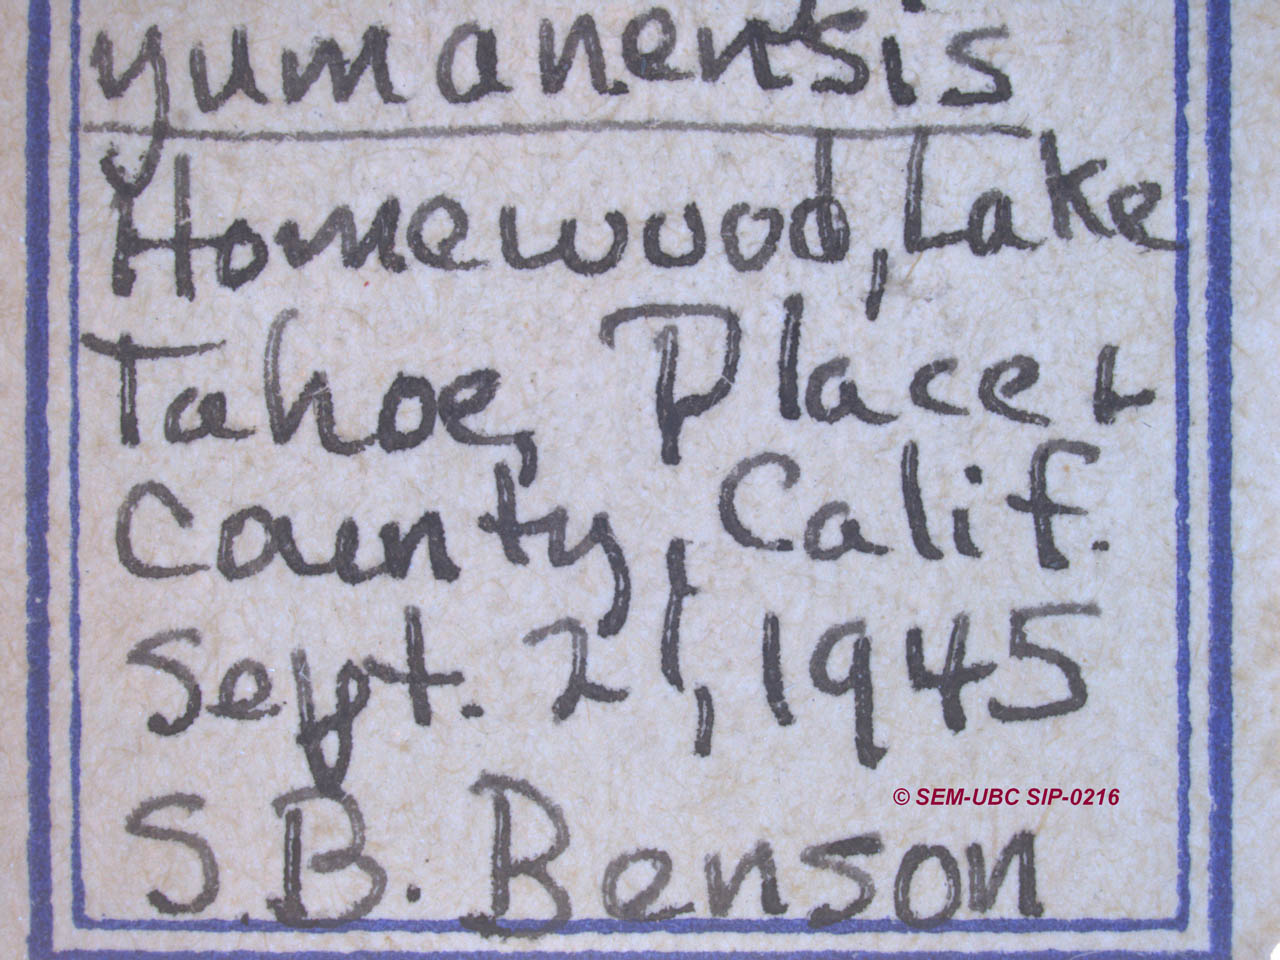 yumanensis
Homewood, Lake
Tahoe, Placer
County, Calif.
Sept. 21, 1945
© SEM-UBC SIP-0216
S.B. Benson